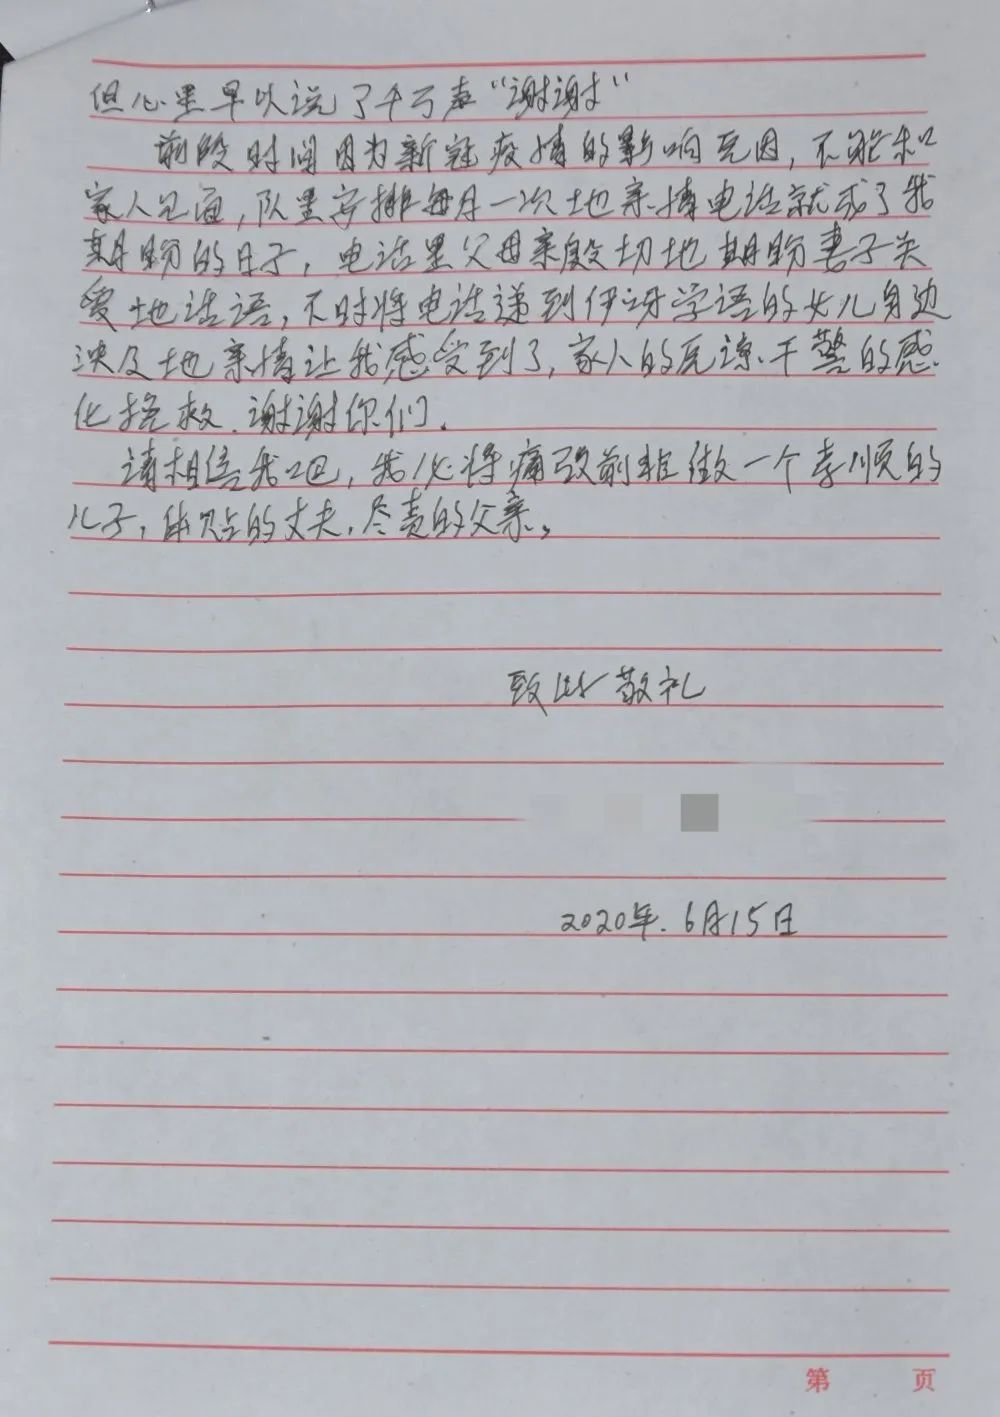 但心里早以说了千万声“谢谢”
前段时间因为新冠疫情的影响原因，不能和
家人见面，队里安排每月一次地亲情电话就成了我
期盼的日子，电话里父母亲殷切地期盼妻子关
爱地话语，不时将电话递到伊讶学语的女儿身边
涉及地亲情让我感受到了，家人的原谅.干警的感
化拯救.谢谢你们.
请相信我吧，我必将痛改前非做一个孝顺的
儿子，体贴的丈夫.尽责的父亲。
致此敬礼
2020年.6月15日
第 页